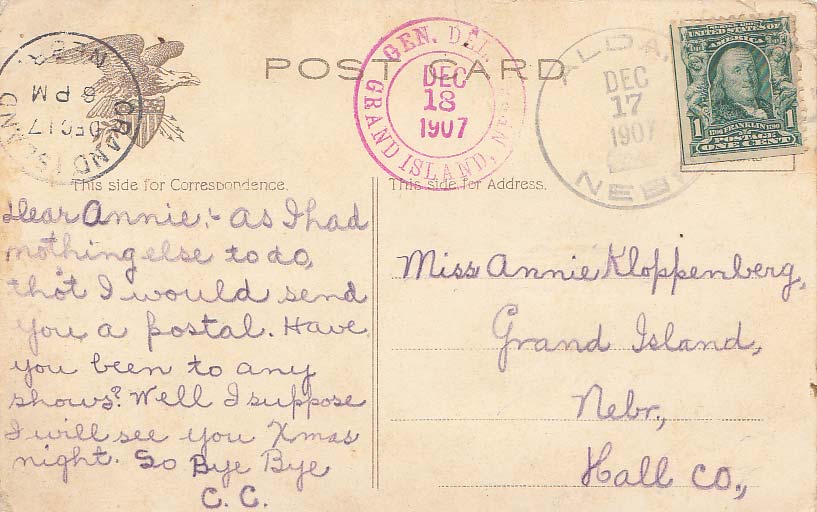 POST CARD
GRAND ISLAND
NEBR.
DEC 17
6 PM
GEN. DEL.
DEC
18
1907
GRAND ISLAND, NEBR.
ALDA,
DEC
17
1907
NEBR
UNITED STATES OF
AMERICA
1 1
POSTAGE
ONE CENT
This side for Correspondence.
Dear Annie:- as I had
nothing else to do,
thot I would send
you a postal. Have
you been to any
shows? Well I suppose
I will see you Xmas
night. So Bye Bye
C. C.
This side for Address.
Miss Annie Kloppenberg,
Grand Island,
Nebr.,
Hall Co.,